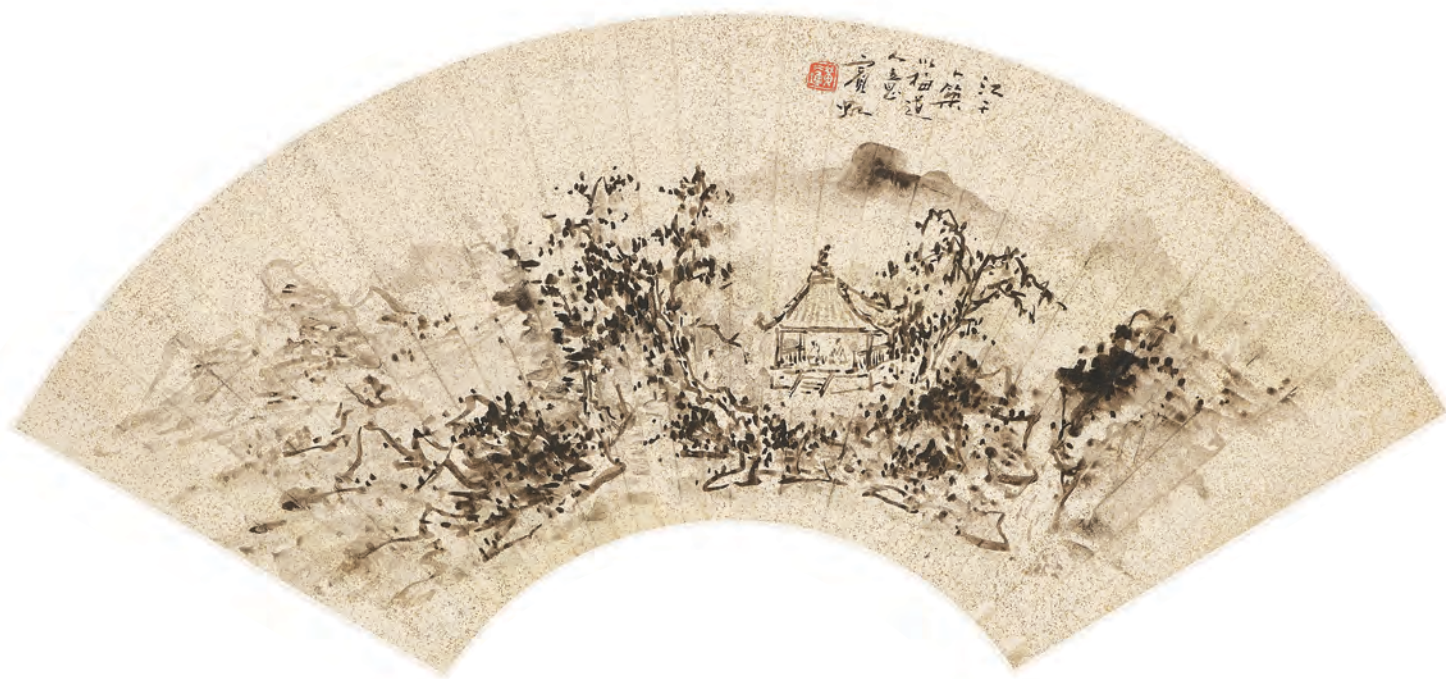 江干
卜築
以梅道
人意
賓虹